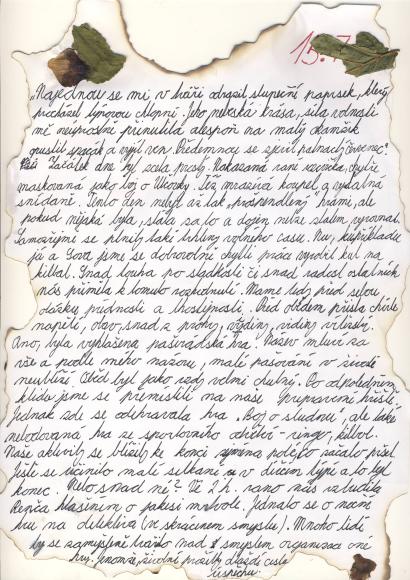 15.7.
„Najednou se mi v tváři odrazil sluneční paprsek, který
přicházel týpovou chlopní. Jeho nebeská krása, síla volnosti
mě neuprosně přinutila alespoň na malý okamžik
opustit spacák a vyjít ven. Přede mnou se zjevil
Začátek dne byl zcela prostý. Nakázaná ranní rozcvička, chytře
maskovaná jako boj o Těž mrazivá koupel a vydatná
snídaně. Tento den nebyl až tak „prosvendlený" hrámi, ale
pokud nějaká byla, stála za to a dojem nelze slovem vyrovnat.
Samozřejmě se plnily také trhliny volného času. Nu, kupříkladu
já a Gova jsme se dobrovolně chytli práce vytvořit kul na
kilbal. Snad touha po sladkosti či snad radost ostatních
nás přiměla k tomuto rozhodnutí. Máme tedy před sebou
otázku prudnosti a lhostejnosti. Před obědem přišla chvíle
napětí, obav, snad z prohry, vidiny vítězství.
Ano, byla vyhlášena pašerácká hra. Název mluví za
vše a podle mého názoru, malé pašování v životě
neublíží. Oběd byl jako vždy velmi chutný. Po odpoledním
klidu jsme se přemístili na naše hřiště.
Jednak zde se odehrávala hra „Boj o studnu", ale také
nelodovaná hra ze sportovního odvětví - ringo, kilbol.
Naše aktivity se blížily ke konci poněvač začalo pršet.
Ještě se učinilo malé setkání v dívčím týpí a to byl
konec. Nebo snad ne? Ve 2 h. ráno nás vzbudila
Řepča hlášením o jakési mrtvole. Jednalo se o noční
hru na detektiva (ve zkráceném smyslu). Mnoho lidí
by se zamyslelo nad smyslem organizace oné
hry. životní prožitky dláždí cestu
úspěchu.